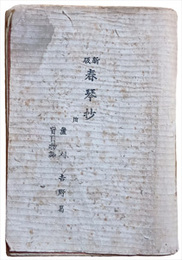 新版
春琴抄
附
蘆刈
吉野葛
盲目物語